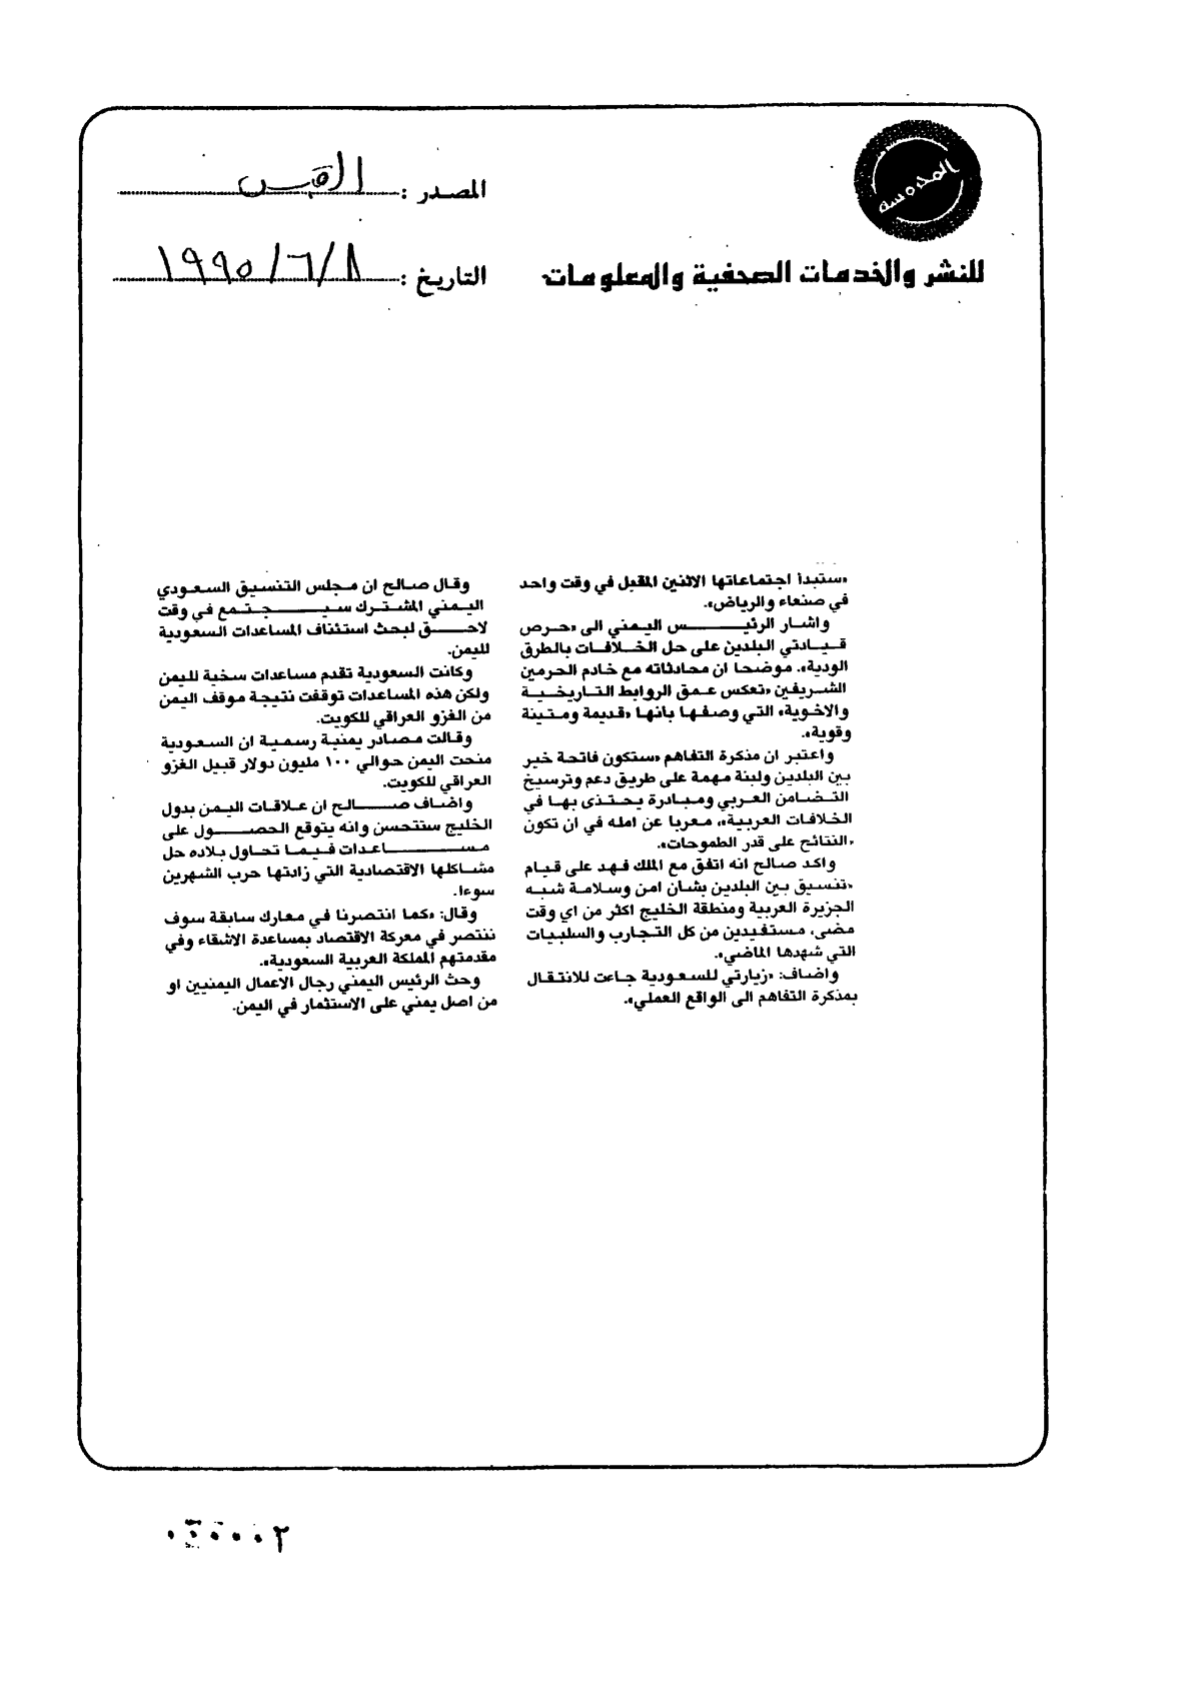 المحروسة
للنشر والخدمات الصحفية والمعلومات
المصدر : القبس
التاريخ : ١٩٩٥/٦/٨
«ستبدأ اجتماعاتها الاثنين المقبل في وقت واحد
في صنعاء والرياض».
واشار الرئيس اليمني الى «حرص
قيادتي البلدين على حل الخلافات بالطرق
الودية». موضحا ان محادثاته مع خادم الحرمين
الشريفين «تعكس عمق الروابط التاريخية
والاخوية» التي وصفها بانها «قديمة ومتينة
وقوية».
واعتبر ان مذكرة التفاهم «ستكون فاتحة خير
بين البلدين ولبنة مهمة على طريق دعم وترسيخ
التضامن العربي ومبادرة يحتذى بها في
الخلافات العربية»، معربا عن امله في ان تكون
«النتائج على قدر الطموحات».
واكد صالح انه اتفق مع الملك فهد على قيام
«تنسيق بين البلدين بشان امن وسلامة شبه
الجزيرة العربية ومنطقة الخليج اكثر من اي وقت
مضى، مستفيدين من كل التجارب والسلبيات
التي شهدها الماضي».
واضاف: «زيارتي للسعودية جاءت للانتقال
بمذكرة التفاهم الى الواقع العملي».
وقال صالح ان مجلس التنسيق السعودي
اليمني المشترك سيجتمع في وقت
لاحق لبحث استئناف المساعدات السعودية
لليمن.
وكانت السعودية تقدم مساعدات سخية لليمن
ولكن هذه المساعدات توقفت نتيجة موقف اليمن
من الغزو العراقي للكويت.
وقالت مصادر يمنية رسمية ان السعودية
منحت اليمن حوالي ١٠٠ مليون دولار قبيل الغزو
العراقي للكويت.
واضاف صالح ان علاقات اليمن بدول
الخليج ستتحسن وانه يتوقع الحصول على
مساعدات فيما تحاول بلاده حل
مشاكلها الاقتصادية التي زادتها حرب الشهرين
سوءا.
وقال: «كما انتصرنا في معارك سابقة سوف
ننتصر في معركة الاقتصاد بمساعدة الاشقاء وفي
مقدمتهم المملكة العربية السعودية».
وحث الرئيس اليمني رجال الاعمال اليمنيين او
من اصل يمني على الاستثمار في اليمن.